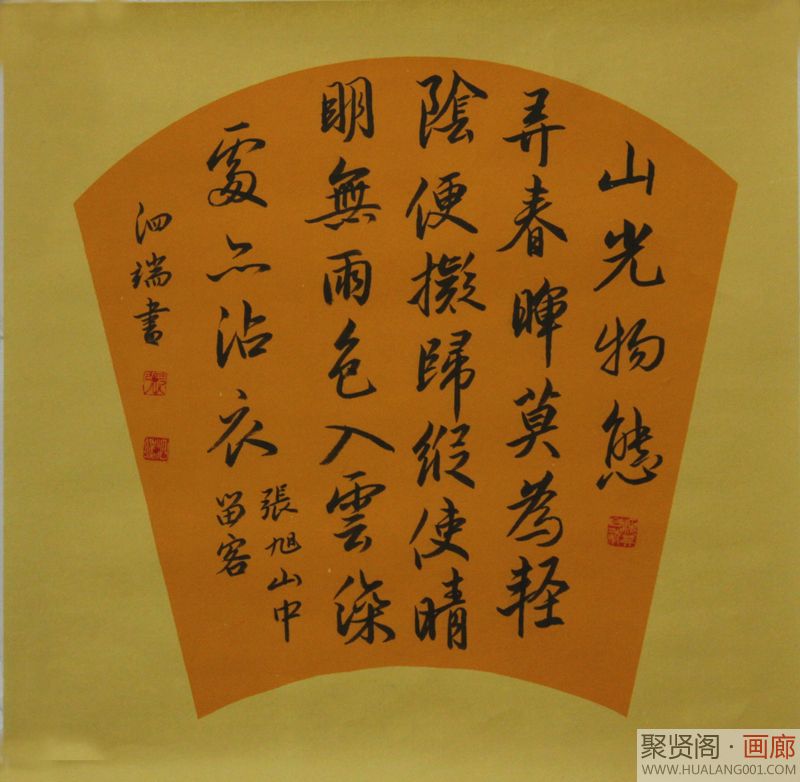 山光物態
弄春暉莫為輕
陰便擬歸縱使晴
明無雨色入雲深
處亦沾衣
張旭山中
留客
泗端書
聚贤阁·画廊
WWW.HUALANG001.COM